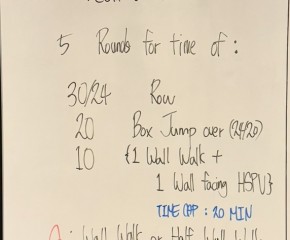 5 Rounds for time of :
30/24 Row
20 Box Jump over (24/20)
10 {1 Wall Walk +
1 Wall facing HSPU}
TIME CAP : 20 MIN
: Wall Walk or Half Wall Walk